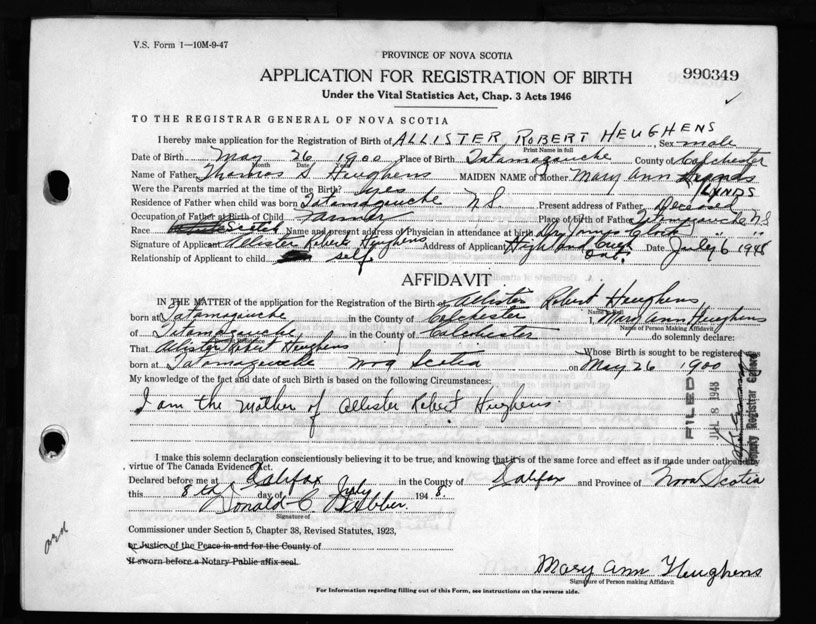 V.S. Form 1—10M-9-47
PROVINCE OF NOVA SCOTIA
APPLICATION FOR REGISTRATION OF BIRTH
990349
Under the Vital Statistics Act, Chap. 3 Acts 1946
TO THE REGISTRAR GENERAL OF NOVA SCOTIA
I hereby make application for the Registration of Birth of ALLISTER ROBERT HEUGHENS, Sex male
Print Name in full
Date of Birth May 26 1900 Place of Birth Tatamagouche County of Colchester
Month Date Year
Name of Father Thomas Heughens MAIDEN NAME of Mother Mary Ann
LYNDS
Were the Parents married at the time of the Birth? yes
Residence of Father when child was born Tatamagouche N S Present address of Father Deceased
Occupation of Father at Birth of Child Farmer Place of birth of Father Tatamagouche N.S
Race Scotch Name and present address of Physician in attendance at birth Dr James Clark " "
Signature of Applicant Allister Robert Heughens Address of Applicant Highland Creek Ont. Date July 6 1948
Relationship of Applicant to child self
AFFIDAVIT
IN THE MATTER of the application for the Registration of the Birth of Allister Robert Heughens
born at Tatamagouche in the County of Colchester, Mary Ann Heughens
Name of Person Making Affidavit
of Tatamagouche in the County of Colchester do solemnly declare:
That Allister Robert Heughens Whose Birth is sought to be registered
born at Tatamagouche Nova Scotia on May 26 1900
My knowledge of the fact and date of such Birth is based on the following Circumstances:
I am the mother of Allister Robert Heughens.
FILED
JUL 8 1948
Deputy Registrar General
I make this solemn declaration conscientiously believing it to be true, and knowing that it is of the same force and effect as if made under oath and by
virtue of The Canada Evidence Act.
Declared before me at Halifax in the County of Halifax and Province of Nova Scotia
this 8th day of July 1948.
Donald C.
Signature of
Commissioner under Section 5, Chapter 38, Revised Statutes, 1923,
or Justice of the Peace in and for the County of
If sworn before a Notary Public affix seal.
Mary Ann Heughens
Signature of Person making Affidavit
For Information regarding filling out of this Form, see instructions on the reverse side.